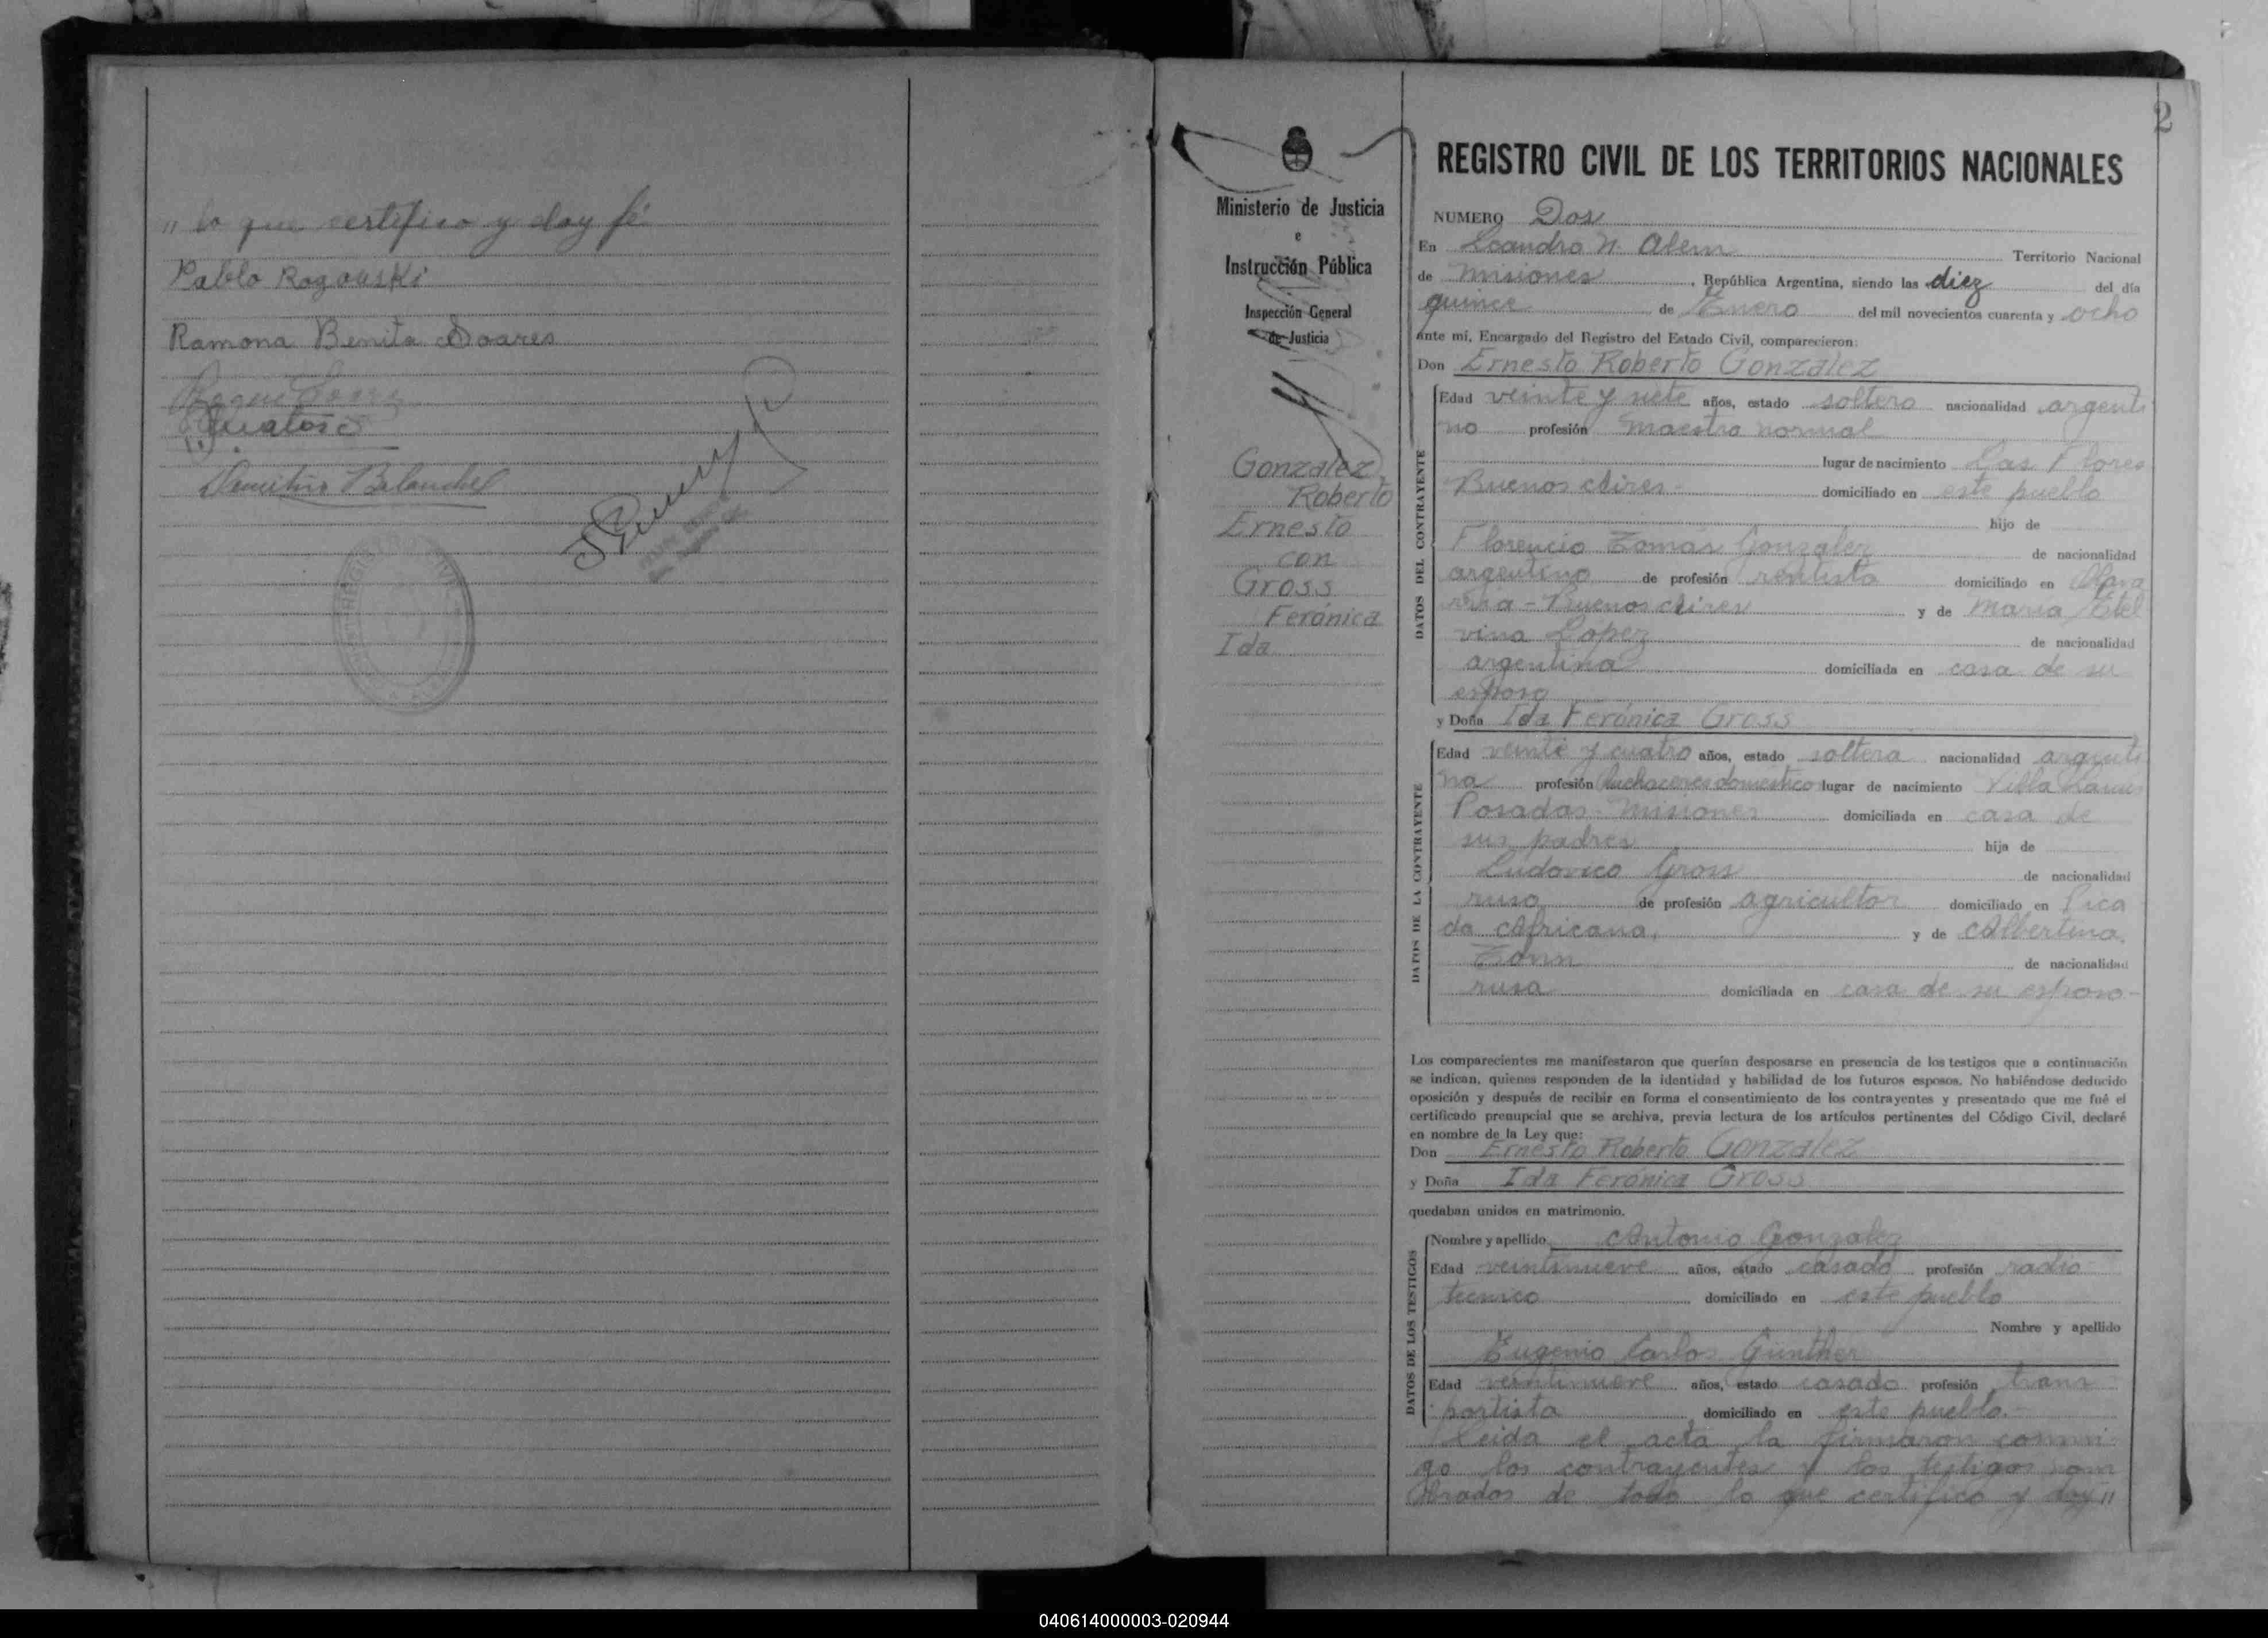 " lo que certifico y doy fé
Pablo Rogouski
Ramona Benita Soares
2
Ministerio de Justicia
e
Instrucción Pública
Inspección General
de Justicia
Gonzalez
Roberto
Ernesto
con
Gross
Ferónica
Ida
REGISTRO CIVIL DE LOS TERRITORIOS NACIONALES
NUMERO Dos
En Leandro N. Alem Territorio Nacional
de Misiones, República Argentina, siendo las diez del día
quince de Enero del mil novecientos cuarenta y ocho
ante mí, Encargado del Registro del Estado Civil, comparecieron:
Don Ernesto Roberto González
DATOS DEL CONTRAYENTE
Edad veinte y siete años, estado soltero nacionalidad argenti
no profesión maestro normal
lugar de nacimiento Las Flores
Buenos Aires - domiciliado en este pueblo
hijo de
Florencio Tomás Gonzalez de nacionalidad
argentino de profesión rentista domiciliado en Olava
rria - Buenos Aires y de Maria Etel
vina López de nacionalidad
argentina domiciliada en casa de su
esposo
y Doña Ida Ferónica Gross
DATOS DE LA CONTRAYENTE
Edad veinte y cuatro años, estado soltera nacionalidad argenti
na profesión quehaceres domestico lugar de nacimiento Villa Lanus
Posadas - Misiones domiciliada en casa de
sus padres hija de
Ludovico Gross de nacionalidad
ruso de profesión agricultor domiciliado en Pica
da Africana, y de Albertina
Zonn de nacionalidad
rusa domiciliada en casa de su esposo -
Los comparecientes me manifestaron que querían desposarse en presencia de los testigos que a continuación
se indican, quienes responden de la identidad y habilidad de los futuros esposos. No habiéndose deducido
oposición y después de recibir en forma el consentimiento de los contrayentes y presentado que me fué el
certificado prenupcial que se archiva, previa lectura de los artículos pertinentes del Código Civil, declaré
en nombre de la Ley que:
Don Ernesto Roberto González
y Doña Ida Ferónica Gross
quedaban unidos en matrimonio.
DATOS DE LOS TESTIGOS
Nombre y apellido Antonio Gonzalez
Edad veintinueve años, estado casado profesión radio
tecnico domiciliado en este pueblo
Nombre y apellido
Eugenio Carlos Günther
Edad veintinueve años, estado casado profesión trans
portista domiciliado en este pueblo.-
Leida el acta la firmaron conmi
go los contrayentes y los testigos nom
brados de todo lo que certifico y doy "
040614000003-020944